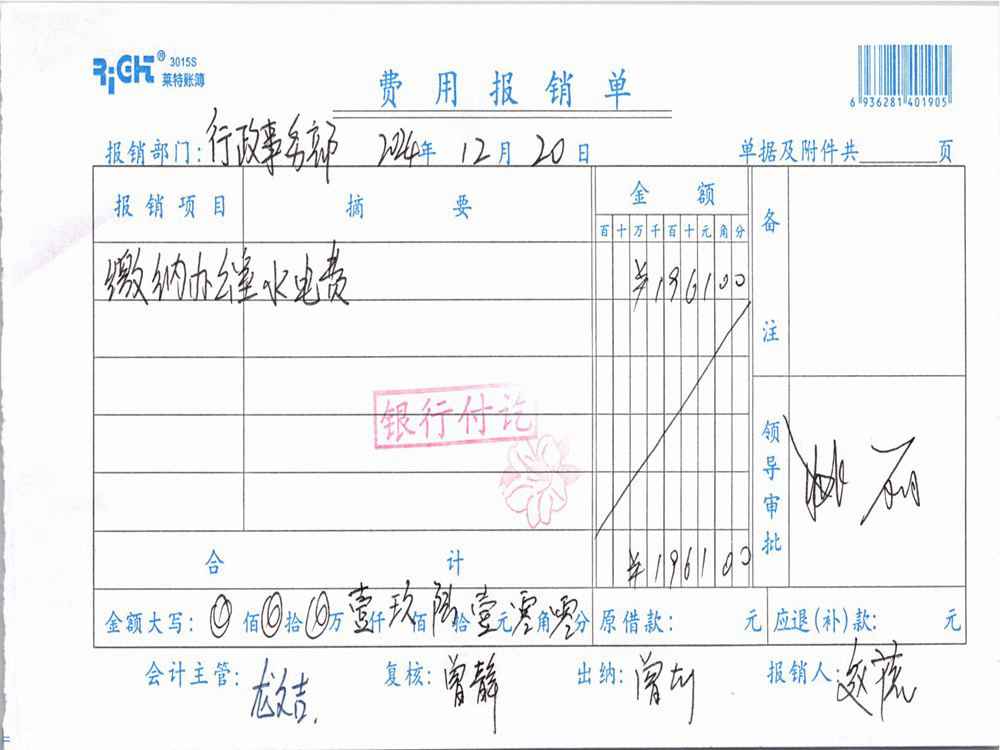 RiGH® 3015S
莱特账簿
费用报销单
6 936281 401905
报销部门：行政事务部 2024年 12月 20日 单据及附件共 页
报销项目 摘要 金额 备注
百十万千百十元角分
缴纳办缝水电费 ¥196100
银行付讫
领导审批
合计 ¥196100
金额大写： 佰 拾 万 壹仟 玖佰 陆拾 壹元 零角 零分 原借款： 元 应退(补)款： 元
会计主管：龙文吉 复核：曾静 出纳：曾 报销人：